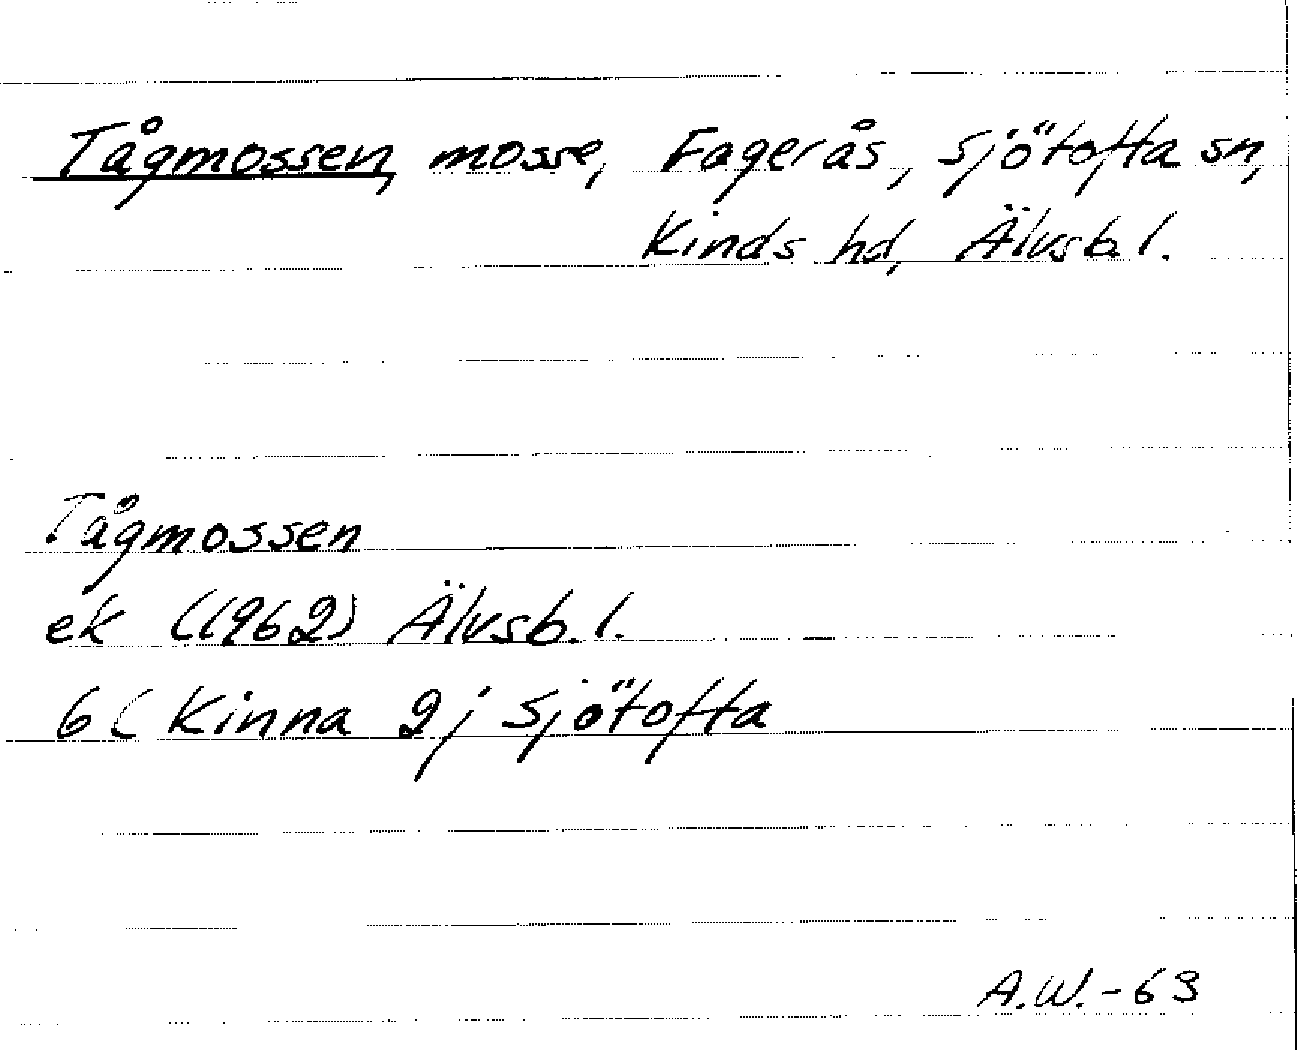 Tågmossen, mosse, Fagerås, Sjötofta sn,
Kinds hd, Älvsb. l.
Tågmossen
ek (1962) Älvsb. l.
6C Kinna 2j Sjötofta
A.W.-63